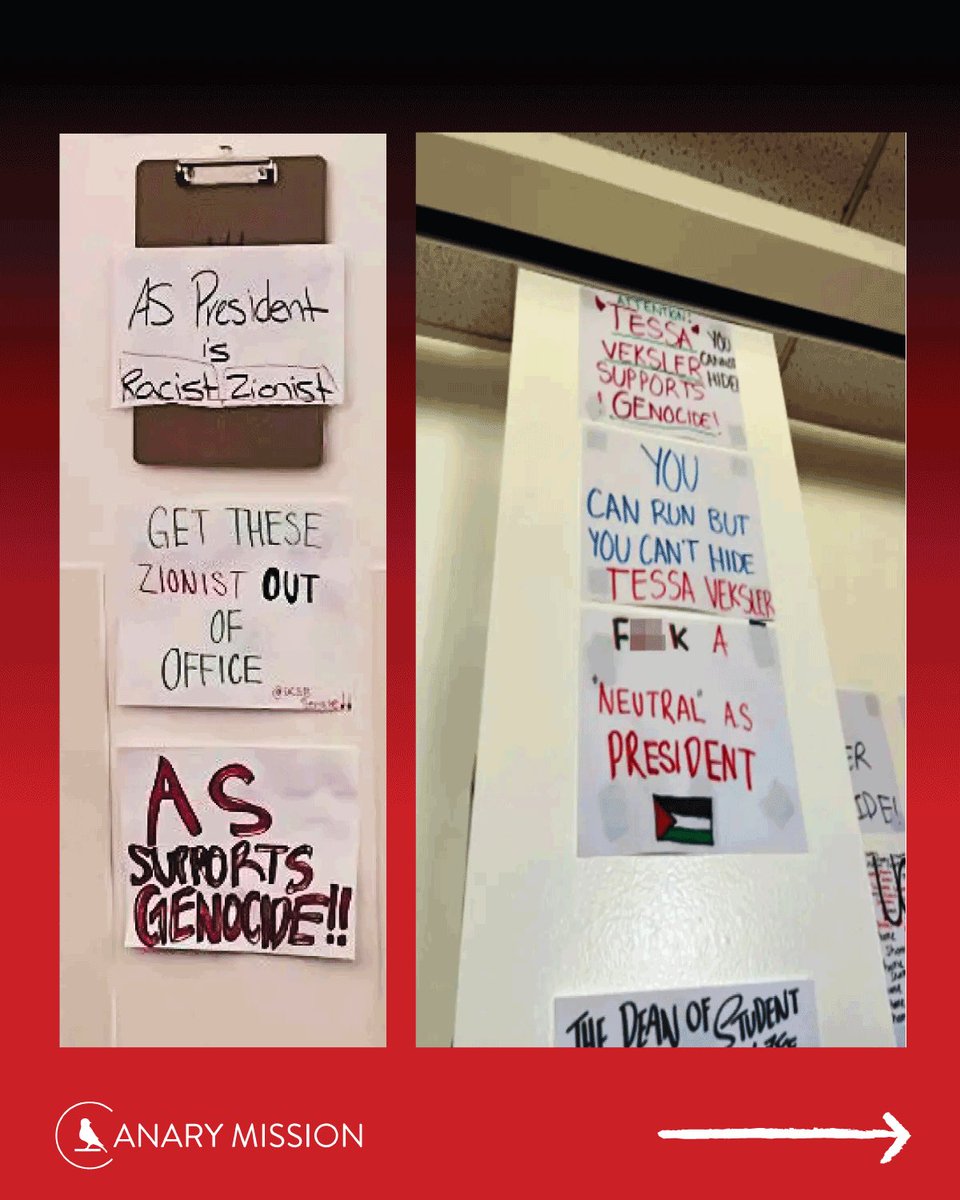 AS President
is
Racist Zionist
GET THESE
ZIONIST OUT
OF
OFFICE
@UCSB
AS
SUPPORTS
GENOCIDE!!
ATTENTION:
TESSA
VEKSLER
SUPPORTS
! GENOCIDE!
YOU
CANNOT
HIDE!
YOU
CAN RUN BUT
YOU CAN'T HIDE
TESSA VEKSLER
F K A
"NEUTRAL" AS
PRESIDENT
ER
IDE!
THE DEAN OF STUDENT
CANARY MISSION